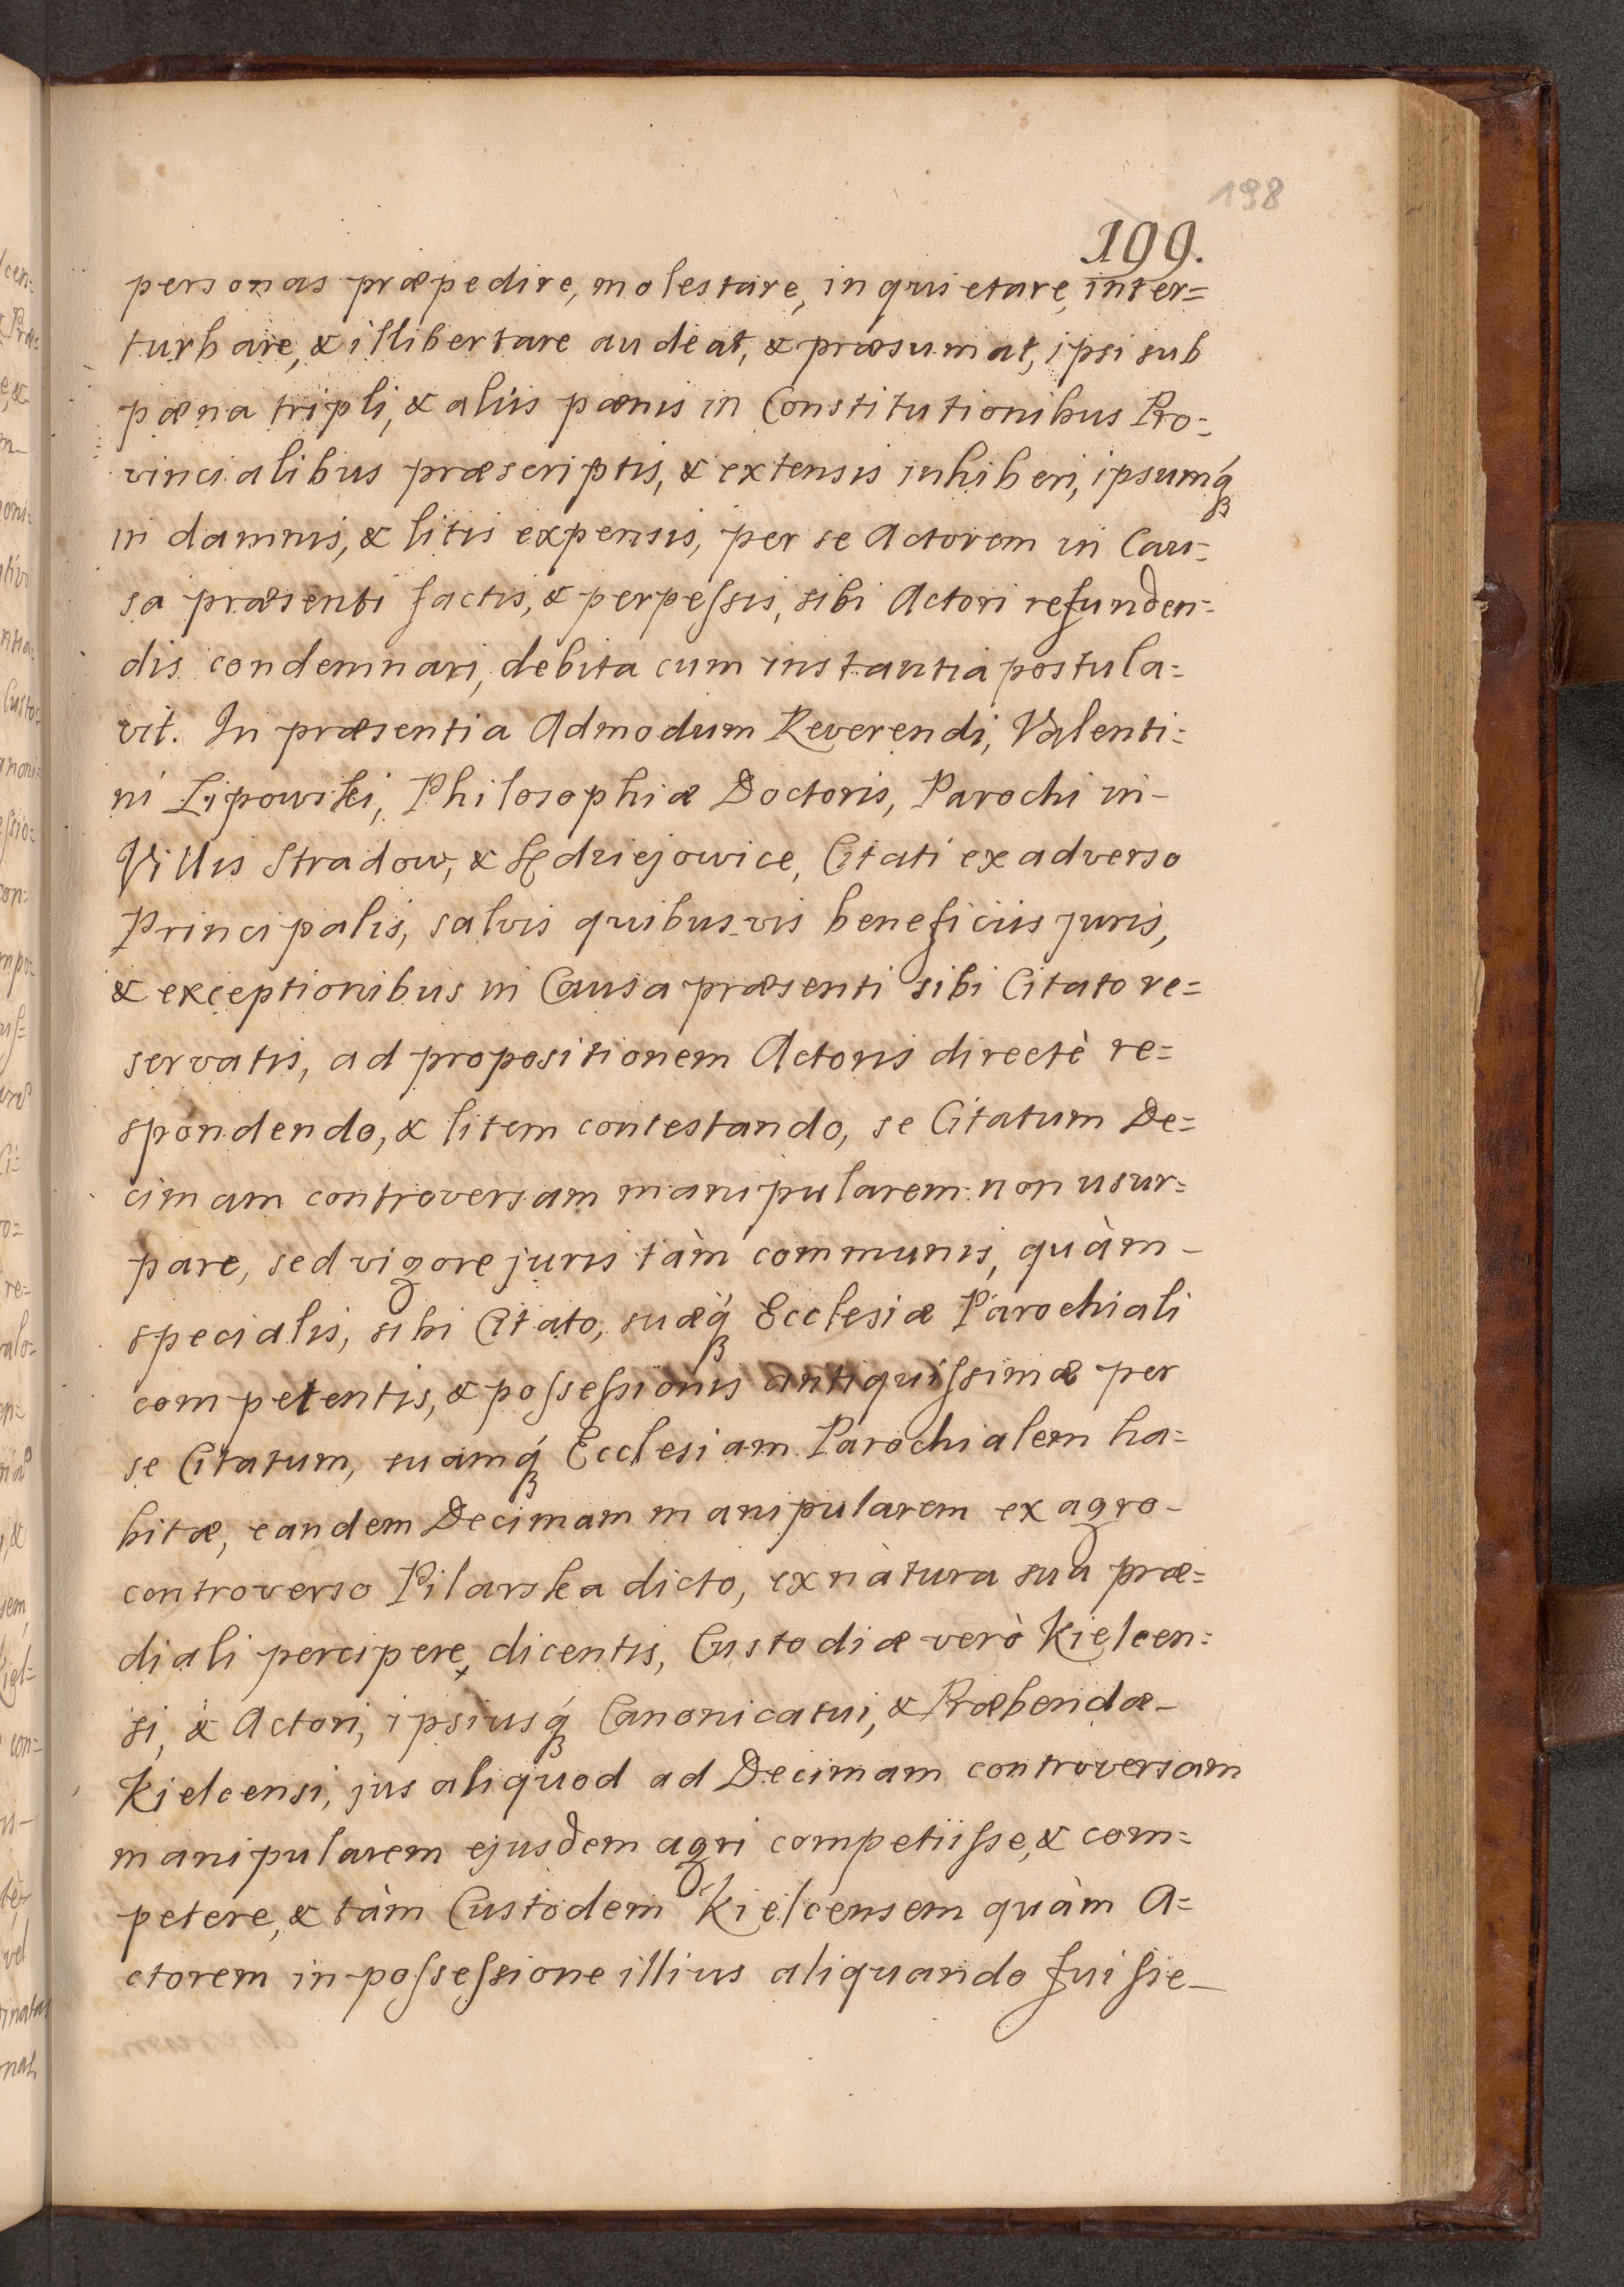 198
199.
personas præpedire, molestare, inquietare, inter=
turbare, & illibertare audeat, & præsumat, ipsi sub
pæna tripli, & alijs pænis in Constitutionibus Pro=
vincialibus præscriptis, & extensis inhiberi, ipsumq́
in damnis, & litis expensis, per se Actorem in Cau=
sa præsenti factis, & perpeſsis, sibi Actori refunden=
dis condemnari, debita cum instantia postula=
vit. In præsentia Admodum Reverendi, Valenti=
ni Lipowski, Philosophiæ Doctoris, Parochi in-
Villis Stradow, & Sędziejowice, Citati ex adverso
Principalis, salvis quibusvis beneficiis juris,
& exceptionibus in Causa præsenti sibi Citato re=
servatis, ad propositionem Actoris directè re=
spondendo, & litem contestando, se Citatum De=
cimam controversam manipularem non usur=
pare, sed vigore juris tàm communis, quàm-
specialis, sibi Citato, suæq́ Ecclesiæ Parochiali
competentis, & poſseſsionis antiquiſsimæ per
se Citatum, suamq́ Ecclesiam Parochialem ha=
bitæ, eandem Decimam manipularem ex agro-
controverso Pilarska dicto, ex natura sua præ=
diali percipere, dicentis, Custodiæ verò Kielcen=
si, & Actori, ipsiusq́ Canonicatui, & Præbendæ-
Kielcensi, jus aliquod ad Decimam controversam
manipularem ejusdem agri competiiſse, & com=
petere, & tàm Custodem Kielcensem quàm A=
ctorem in poſseſsione illius aliquando fuiſse-